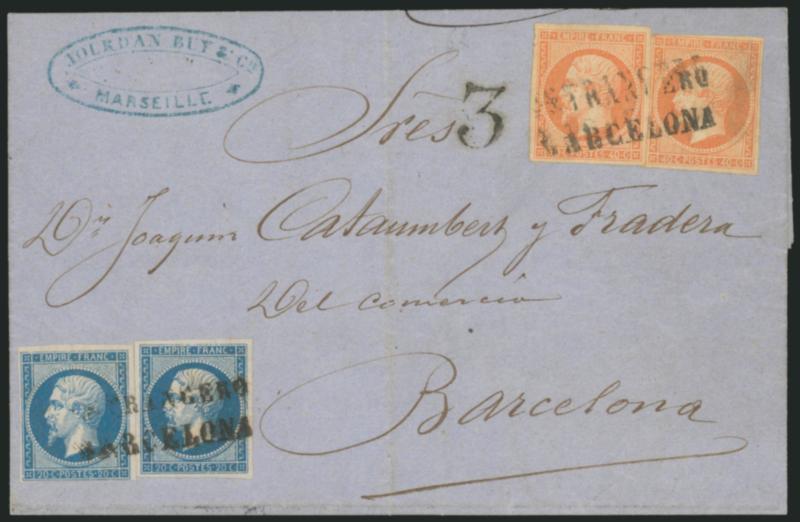 JOURDAN BUY & Cie
MARSEILLE
EMPIRE FRANC
40·C POSTES·40·C
EMPIRE FRANC
40·C POSTES·40·C
ESTRANGERO
BARCELONA
3
Sres
Dn Joaquim Cataumbert y Fradera
Del comercio
Barcelona
EMPIRE·FRANC
20·C POSTES·20·C
EMPIRE·FRANC
20·C POSTES·20·C
ESTRANGERO
BARCELONA